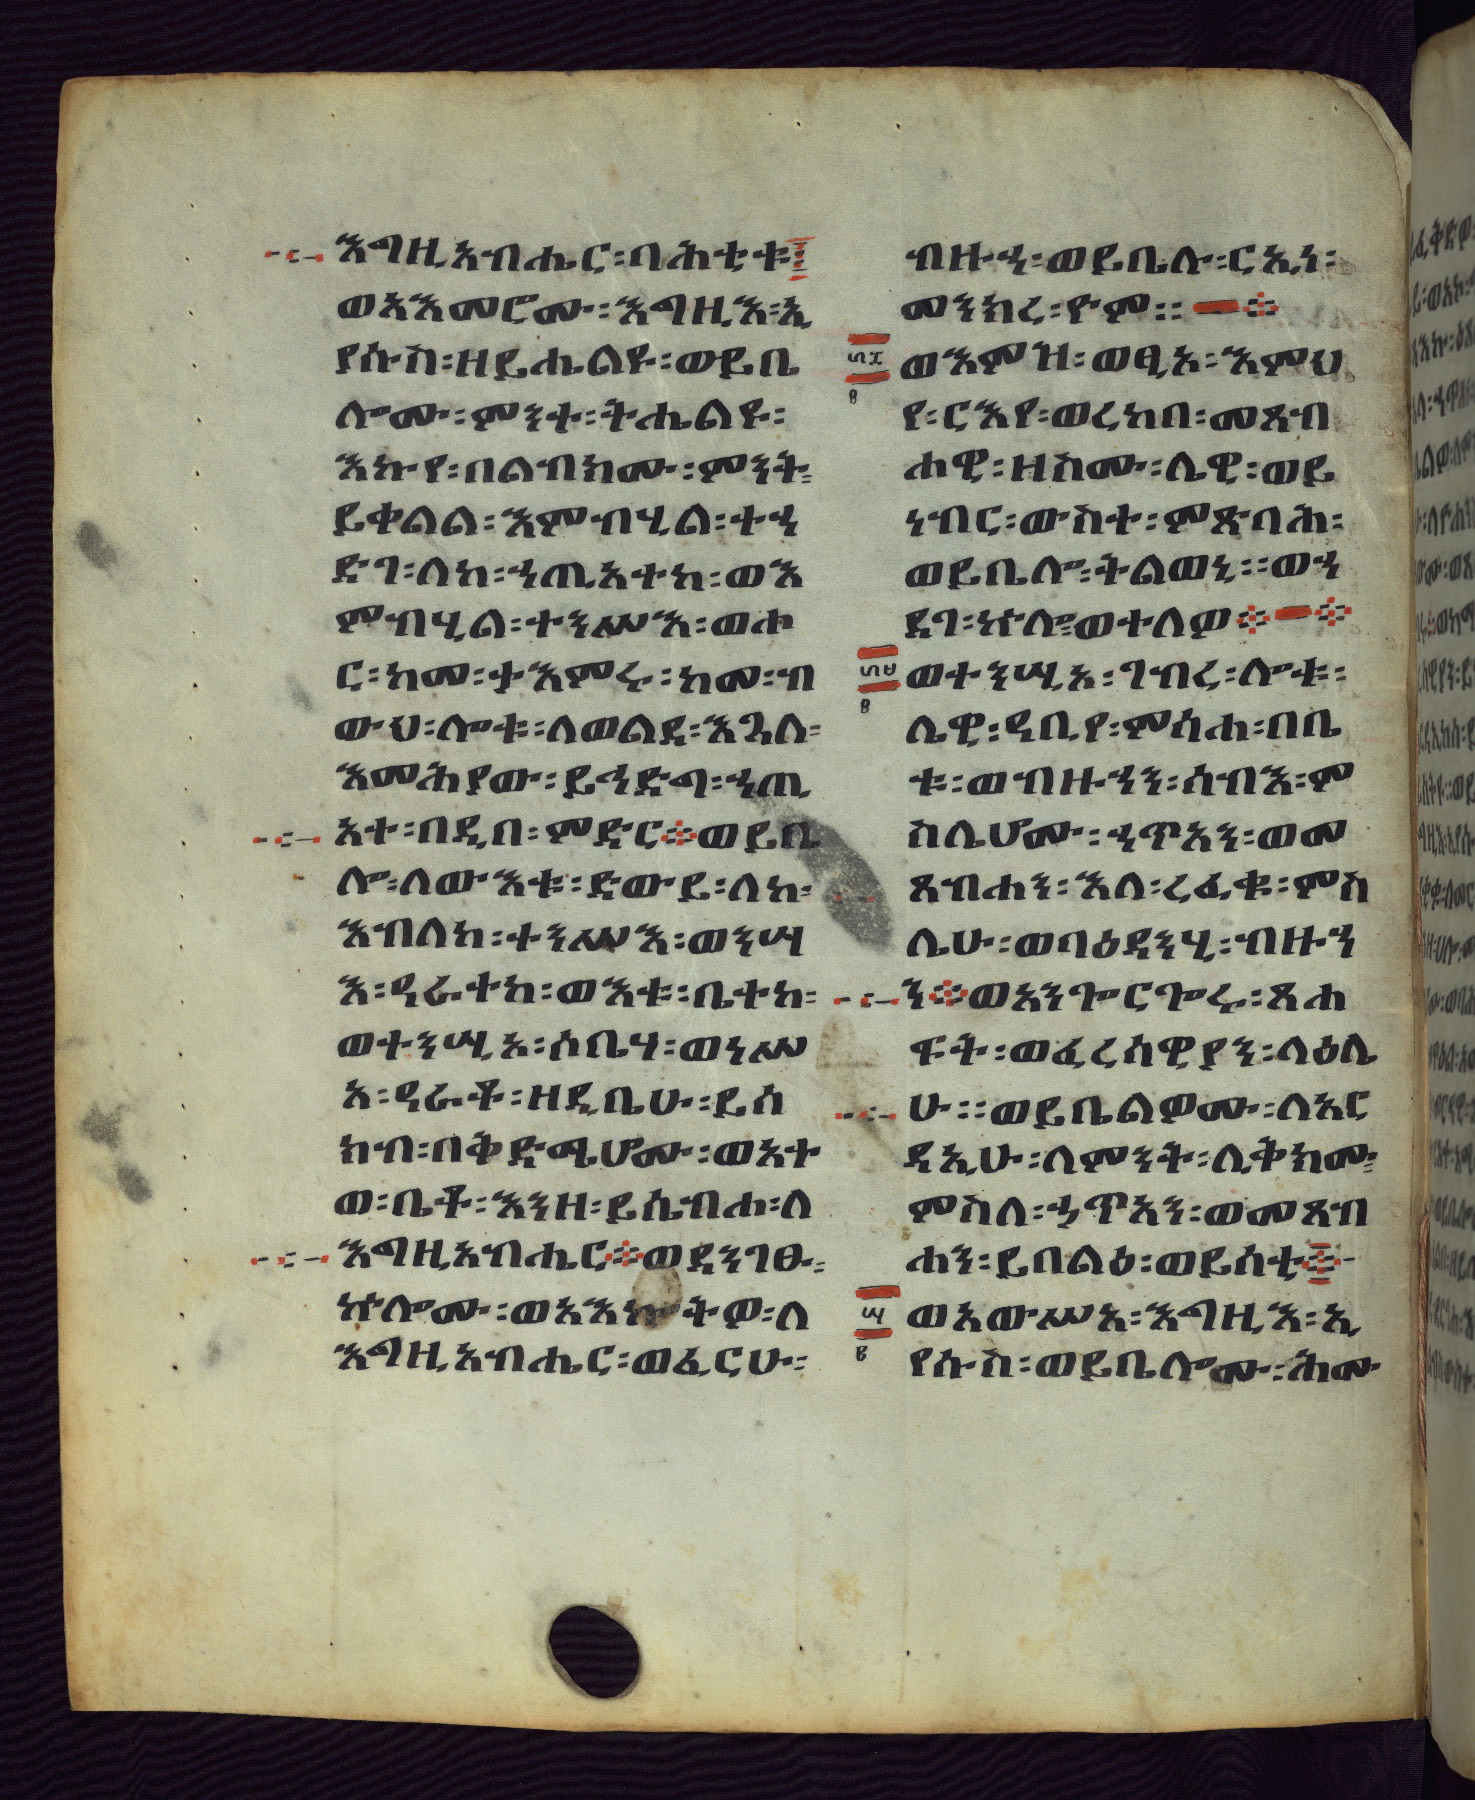 እግዚአብሔር፡ባሕቲቱ፤
ወአእመሮሙ፡እግዚእ፡ኢ
የሱስ፡ዘይሔልዩ፡ወይቤ
ሎሙ፡ምንተ፡ትሔልዩ፡
እኩየ፡በልብክሙ፡ምንት፡
ይቀልል፡እምብሂል፡ተኀ
ድገ፡ለከ፡ኀጢአተከ፡ወእ
ምብሂል፡ተንሥእ፡ወሑ
ር፡ከመ፡ታእምሩ፡ከመ፡ብ
ውህ፡ሎቱ፡ለወልደ፡እጓለ፡
እመሕያው፡ይኅድግ፡ኀጢ
አተ፡በዲበ፡ምድር፨ወይቤ
ሎ፡ለውእቱ፡ድውይ፡ለከ፡
እብለከ፡ተንሥእ፡ወንሣ
እ፡ዓራተከ፡ወእቱ፡ቤተከ፡
ወተንሢአ፡ሶቤሃ፡ወነሥ
አ፡ዓራቶ፡ዘዲቤሁ፡ይሰ
ክብ፡በቅድሜሆሙ፡ወአተ
ወ፡ቤቶ፡እንዘ፡ይሴብሐ፡ለ
እግዚአብሔር፨ወደንገፁ፡
ኵሎሙ፡ወአእኰትዎ፡ለ
እግዚአብሔር፡ወፈርሁ፡
ብዙኀ፡ወይቤሉ፡ርኢነ፡
መንክረ፡ዮም።፨
፲፭
ወእምዝ፡ወፂአ፡እምህ
የ፡ርእየ፡ወረከበ፡መጸብ
ሐዌ፡ዘስሙ፡ሌዊ፡ወይ
ነብር፡ውስተ፡ምጽባሕ፡
ወይቤሎ፡ትልወኒ።ወኀ
ደገ፡ኵሎ፡ወተለዎ፨፨
ወተንሢአ፡ገብረ፡ሎቱ፡
ሌዊ፡ዓቢየ፡ምሳሐ፡በቤ
ቱ፡ወብዙኀን፡ሰብእ፡ም
ስሌሆሙ፡ኃጥአን፡ወመ
ጸብሐን፡እለ፡ረፈቁ፡ምስ
ሌሁ፡ወባዕዳንሂ፡ብዙኀ
ን፨ወአንጐርጐሩ፡ጸሐ
ፍት፡ወፈረሳዊያን፡ላዕሌ
ሁ።ወይቤልዎሙ፡ለአር
ዳኢሁ፡ለምንት፡ሊቅክሙ፡
ምስለ፡ኃጥአን፡ወመጸብ
ሐን፡ይበልዕ፡ወይሰቲ፨
ወአውሥአ፡እግዚእ፡ኢ
የሱስ፡ወይቤሎሙ፡ሕሙ